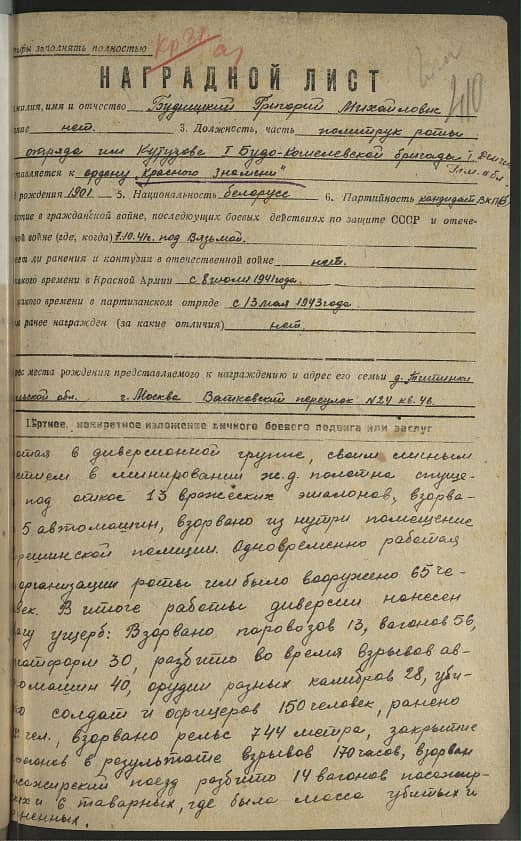 рафы заполнять полностью
НАГРАДНОЙ ЛИСТ
амилия, имя и отчество Будницкий Григорий Михайлович
ние нет. 3. Должность, часть политрук роты
отряда им Кутузова I Будо-Кошелевской бригады
тавляется к ордену „Красного Знамени"
рождения 1901 5. Национальность белорусс 6. Партийность кандидат ВКП/б
стие в гражданской войне, последующих боевых действиях по защите СССР и отече-
ной войне (где, когда) 7.10.41г. под Вязьмой.
ет ли ранения и контузии в отечественной войне нет.
акого времени в Красной Армии с 8 июля 1941 года.
акого времени в партизанском отряде с 13 мая 1943 года
м ранее награжден (за какие отличия) нет
рес места рождения представляемого к награждению и адрес его семьи д.
льской обл. г. Москва Вятковский переулок №24 кв. 46.
I. Краткое, конкретное изложение личного боевого подвига или заслуг
отая в диверсионной группе, своим личным
стием в минировании ж.д. полотна спуще-
под откос 13 вражеских эшалонов, взорва-
5 автомашин, взорвано из нутри помещение
решинской полиции. Одновременно работая
организации роты им было вооружено 65 че-
век. В итоге работы диверсии нанесен
агу ущерб: Взорвано паровозов 13, вагонов 56,
атформ 30, разбито во время взрывов ав-
омашин 40, орудий разных калибров 28, уби-
о солдат и офицеров 150 человек, ранено
чел., взорвано рельс 744 метра, закрытие
регонов в результате взрывов 170 часов, взорван
ссажирский поезд разбито 14 вагонов пасажир-
ких и 6 таварных, где была масса убитых и
ненных.
410